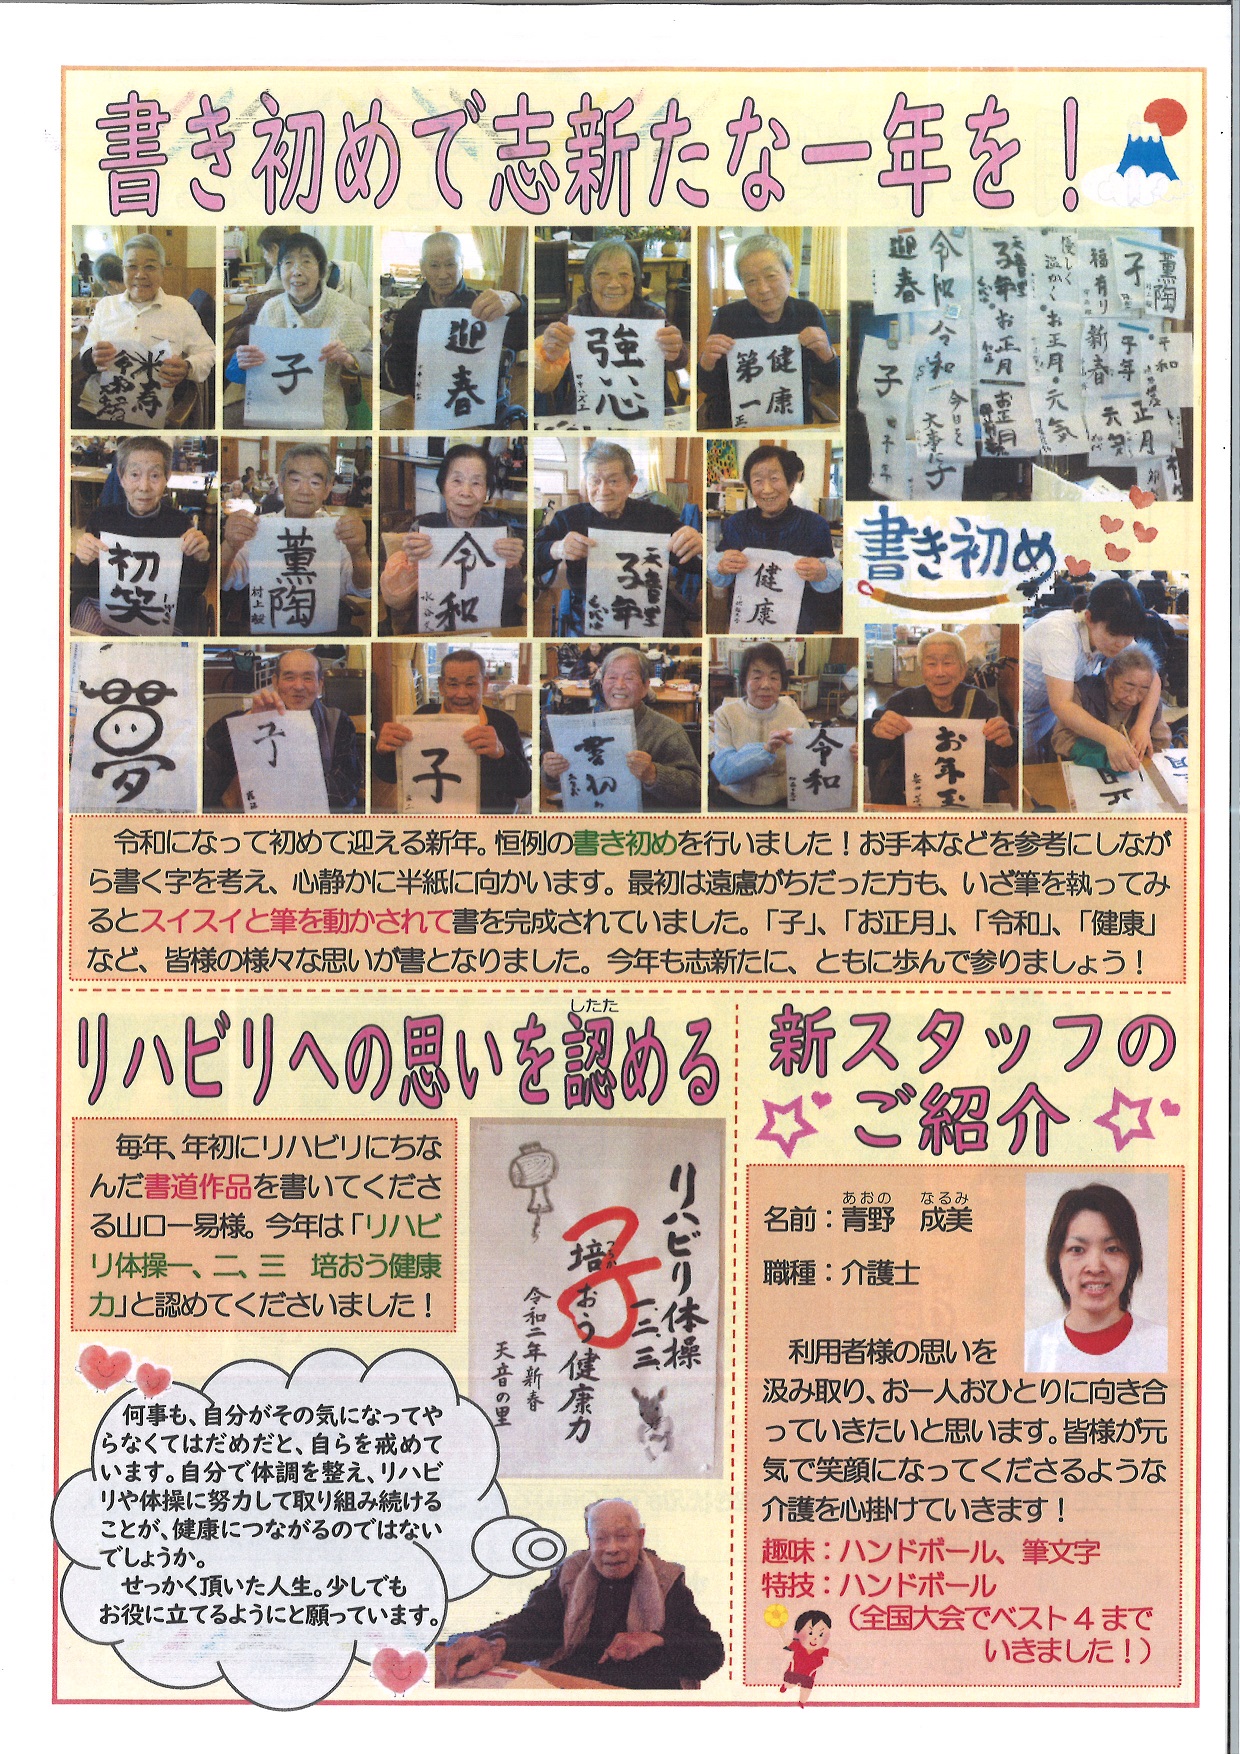 書き初めで志新たな一年を！
米寿
子
迎春
強心
健康
第一
迎春
令和
子年
優しく
温かく
福有り
子
薫陶
令和
お正月
お正月・元気
新春
子年
平和
子
今日を
大事に
子
お正月
元気
正月
初笑
薫陶
村上
令和
水谷
天音里
子年
健康
書き初め
夢
子
子
書初
令和
お年玉
令和になって初めて迎える新年。恒例の書き初めを行いました！お手本などを参考にしなが
ら書く字を考え、心静かに半紙に向かいます。最初は遠慮がちだった方も、いざ筆を執ってみ
るとスイスイと筆を動かされて書を完成されていました。「子」、「お正月」、「令和」、「健康」
など、皆様の様々な思いが書となりました。今年も志新たに、ともに歩んで参りましょう！
したた
リハビリへの思いを認める
毎年、年初にリハビリにちな
んだ書道作品を書いてくださ
る山口一易様。今年は「リハビ
リ体操一、二、三　培おう健康
力」と認めてくださいました！
リハビリ体操
一、二、三
子
つちか
培おう健康力
令和二年新春
天音の里
何事も、自分がその気になってや
らなくてはだめだと、自らを戒めて
います。自分で体調を整え、リハビ
リや体操に努力して取り組み続ける
ことが、健康につながるのではない
でしょうか。
せっかく頂いた人生。少しでも
お役に立てるようにと願っています。
新スタッフの
ご紹介
あおの　なるみ
名前：青野　成美
職種：介護士
利用者様の思いを
汲み取り、お一人おひとりに向き合
っていきたいと思います。皆様が元
気で笑顔になってくださるような
介護を心掛けていきます！
趣味：ハンドボール、筆文字
特技：ハンドボール
（全国大会でベスト４まで
いきました！）